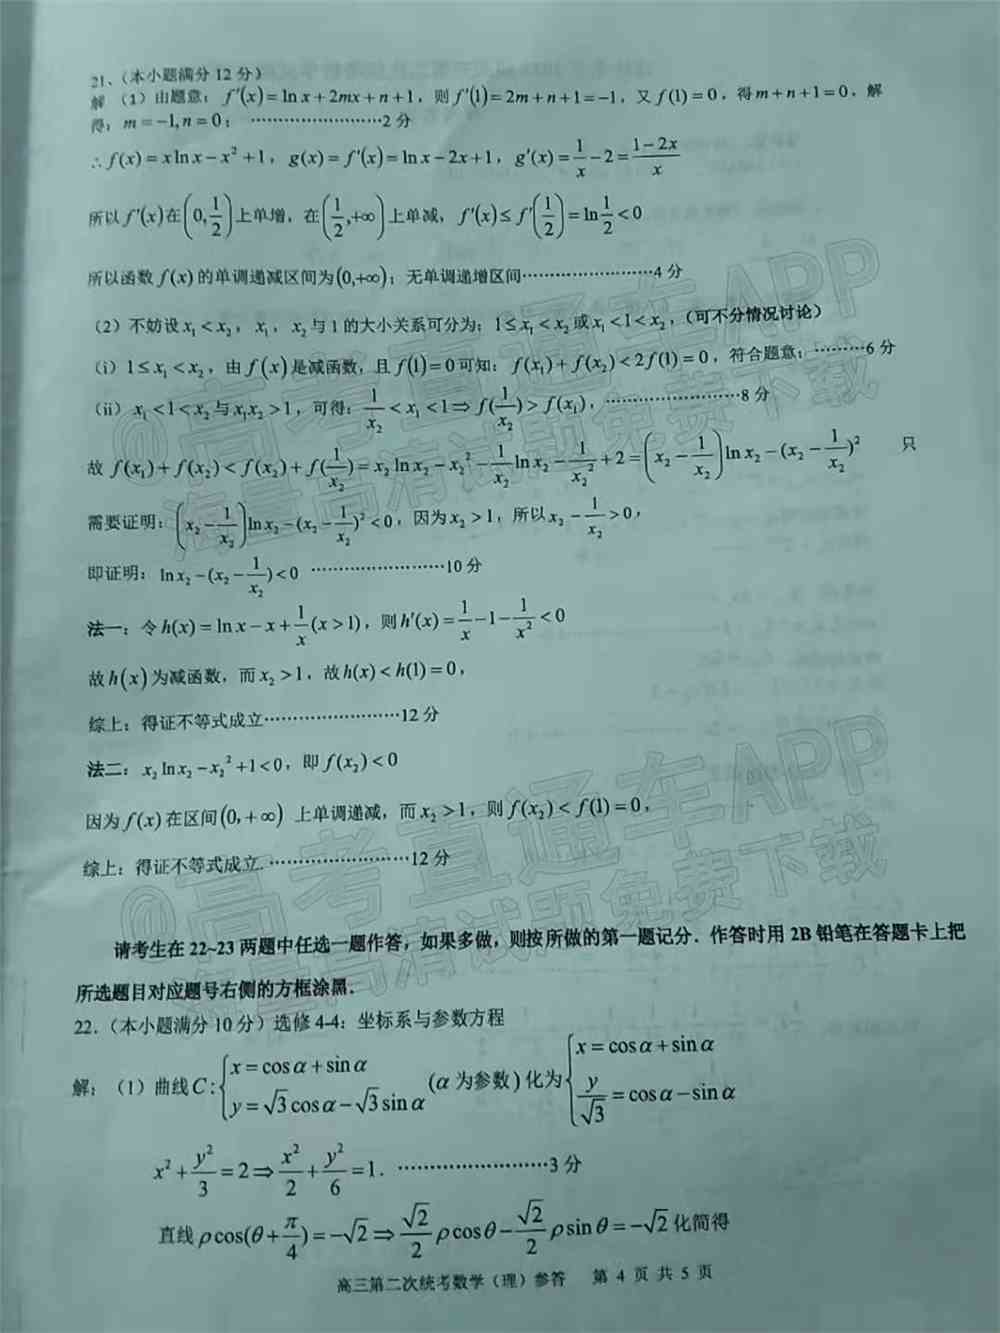 21、（本小题满分12分）
解 （1）由题意：f′(x)=ln x+2mx+n+1，则f′(1)=2m+n+1=−1，又f(1)=0，得m+n+1=0，解
得：m=−1,n=0；……………………2分
∴f(x)=xln x−x²+1，g(x)=f′(x)=ln x−2x+1，g′(x)=1/x−2=(1−2x)/x
所以f′(x)在(0,1/2)上单增，在(1/2,+∞)上单减，f′(x)≤f′(1/2)=ln1/2<0
所以函数f(x)的单调递减区间为(0,+∞)；无单调递增区间……………………4分
（2）不妨设x₁<x₂，x₁，x₂与1的大小关系可分为：1≤x₁<x₂或x₁<1<x₂，（可不分情况讨论）
（i）1≤x₁<x₂，由f(x)是减函数，且f(1)=0可知：f(x₁)+f(x₂)<2f(1)=0，符合题意；………6分
（ii）x₁<1<x₂与x₁x₂>1，可得：1/x₂<x₁<1⇒f(1/x₂)>f(x₁)，……………………8分
故f(x₁)+f(x₂)<f(x₂)+f(1/x₂)=x₂ln x₂−x₂²−1/x₂ ln x₂−1/x₂²+2=(x₂−1/x₂)ln x₂−(x₂−1/x₂)² 只
需要证明：(x₂−1/x₂)ln x₂−(x₂−1/x₂)²<0，因为x₂>1，所以x₂−1/x₂>0，
即证明：ln x₂−(x₂−1/x₂)<0 ……………………10分
法一：令h(x)=ln x−x+1/x(x>1)，则h′(x)=1/x−1−1/x²<0
故h(x)为减函数，而x₂>1，故h(x)<h(1)=0，
综上：得证不等式成立……………………12分
法二：x₂ln x₂−x₂²+1<0，即f(x₂)<0
因为f(x)在区间(0,+∞) 上单调递减，而x₂>1，则f(x₂)<f(1)=0，
综上：得证不等式成立.……………………12分
请考生在22~23两题中任选一题作答，如果多做，则按所做的第一题记分．作答时用2B铅笔在答题卡上把
所选题目对应题号右侧的方框涂黑．
22．（本小题满分10分）选修4-4：坐标系与参数方程
解：（1）曲线C:{x=cosα+sinα y=√3cosα−√3sinα (α为参数)化为{x=cosα+sinα y/√3=cosα−sinα
x²+y²/3=2⇒x²/2+y²/6=1．……………………3分
直线ρcos(θ+π/4)=−√2⇒√2/2ρcosθ−√2/2ρsinθ=−√2化简得
高三第二次统考数学（理）参答 第4页共5页
@高考直通车APP
海量高清试题免费下载
@高考直通车APP
海量高清试题免费下载